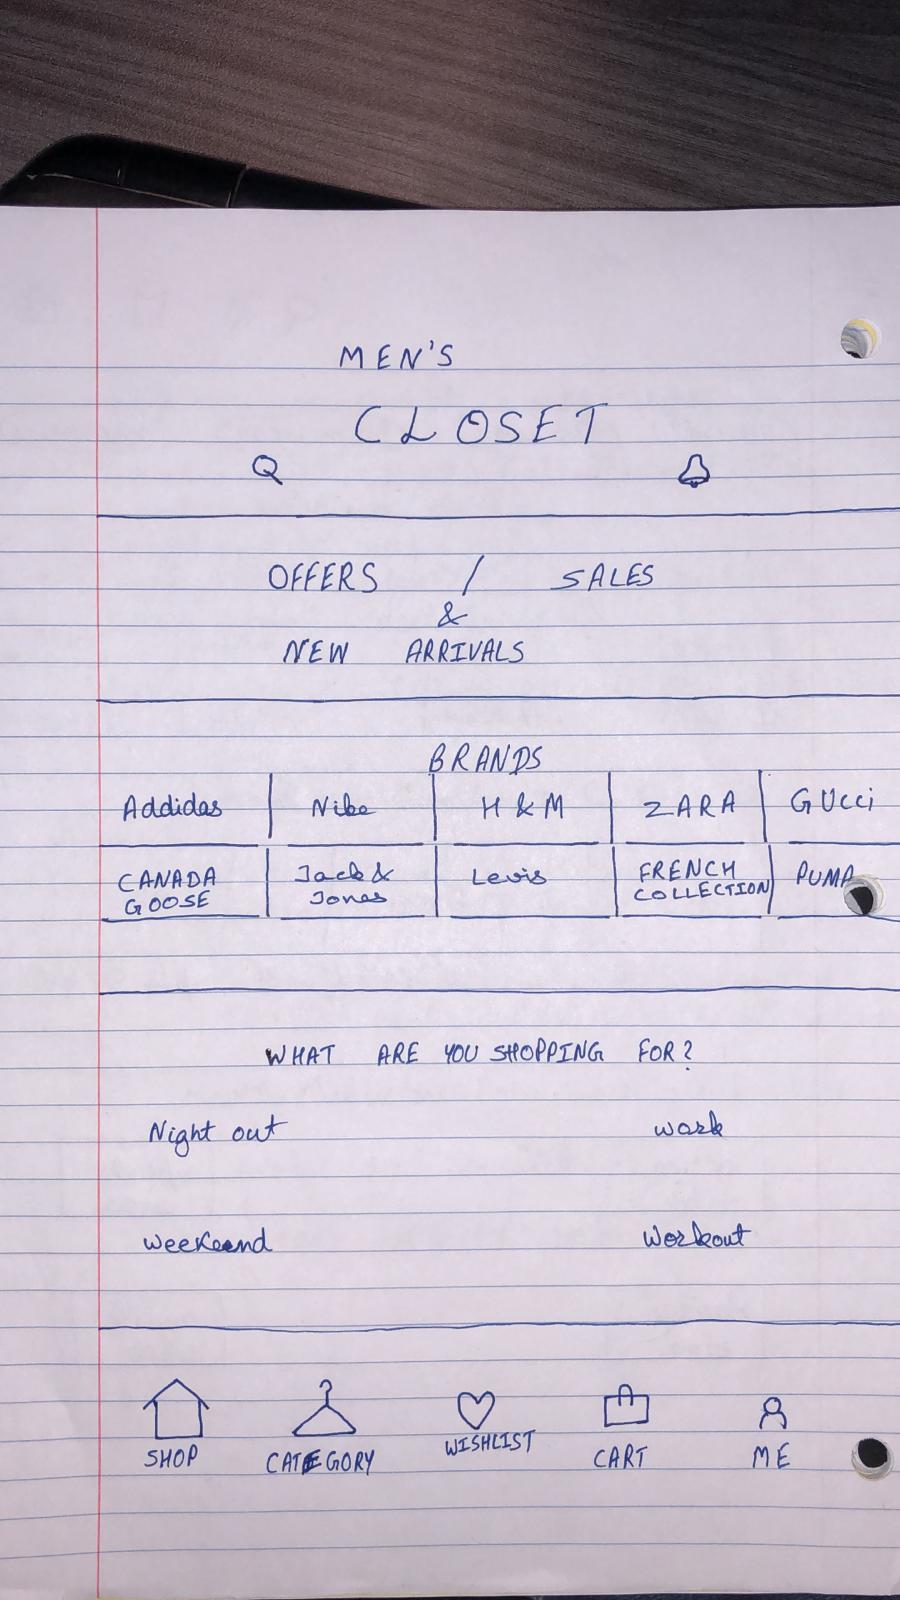 MEN'S
CLOSET
OFFERS / SALES
&
NEW ARRIVALS
BRANDS
Addidas Nike H & M ZARA GUcci
CANADA GOOSE Jack & Jones Levis FRENCH COLLECTION PUMA
WHAT ARE YOU SHOPPING FOR?
Night out work
Weekeend Workout
SHOP CATEGORY WISHLIST CART ME